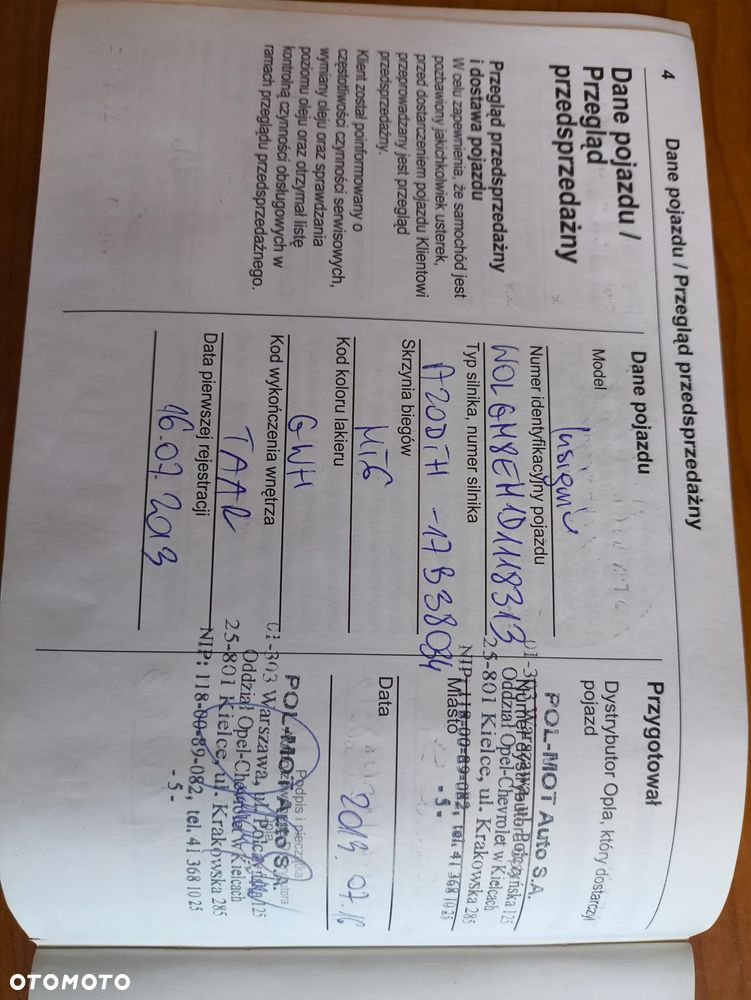 4 Dane pojazdu / Przegląd przedsprzedażny
Dane pojazdu /
Przegląd
przedsprzedażny
Przegląd przedsprzedażny
i dostawa pojazdu
W celu zapewnienia, że samochód jest
pozbawiony jakichkolwiek usterek,
przed dostarczeniem pojazdu Klientowi
przeprowadzany jest przegląd
przedsprzedażny.
Klient został poinformowany o
częstotliwości czynności serwisowych,
wymiany oleju oraz sprawdzania
poziomu oleju oraz otrzymał listę
kontrolną czynności obsługowych w
ramach przeglądu przedsprzedażnego.
Dane pojazdu
Model
Insignia
Numer identyfikacyjny pojazdu
W0LGM8EM1D1118313
Typ silnika, numer silnika
A20DTH - 17B38084
Skrzynia biegów
MT6
Kod koloru lakieru
GWH
Kod wykończenia wnętrza
TAAR
Data pierwszej rejestracji
16.07.2013
Przygotował
Dystrybutor Opla, który dostarczył
pojazd
POL-MOT Auto S.A.
Oddział Opel-Chevrolet w Kielcach
25-801 Kielce, ul. Krakowska 285
NIP: 118-00-89-082, tel. 41 368 10 25
- 5 -
Miasto
Data
2013.07.16
Podpis i
POL-MOT Auto S.A.
01-303 Warszawa, ul. 125
Oddział Opel-Chevrolet w Kielcach
25-801 Kielce, ul. Krakowska 285
NIP: 118-00-89-082, tel. 41 368 10 25
- 5 -
OTOMOTO